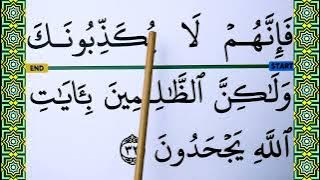 فَإِنَّهُمْ لَا يُكَذِّبُونَكَ
END START
وَلَٰكِنَّ ٱلظَّٰلِمِينَ بِـَٔايَٰتِ
ٱللَّهِ يَجْحَدُونَ ٣٣